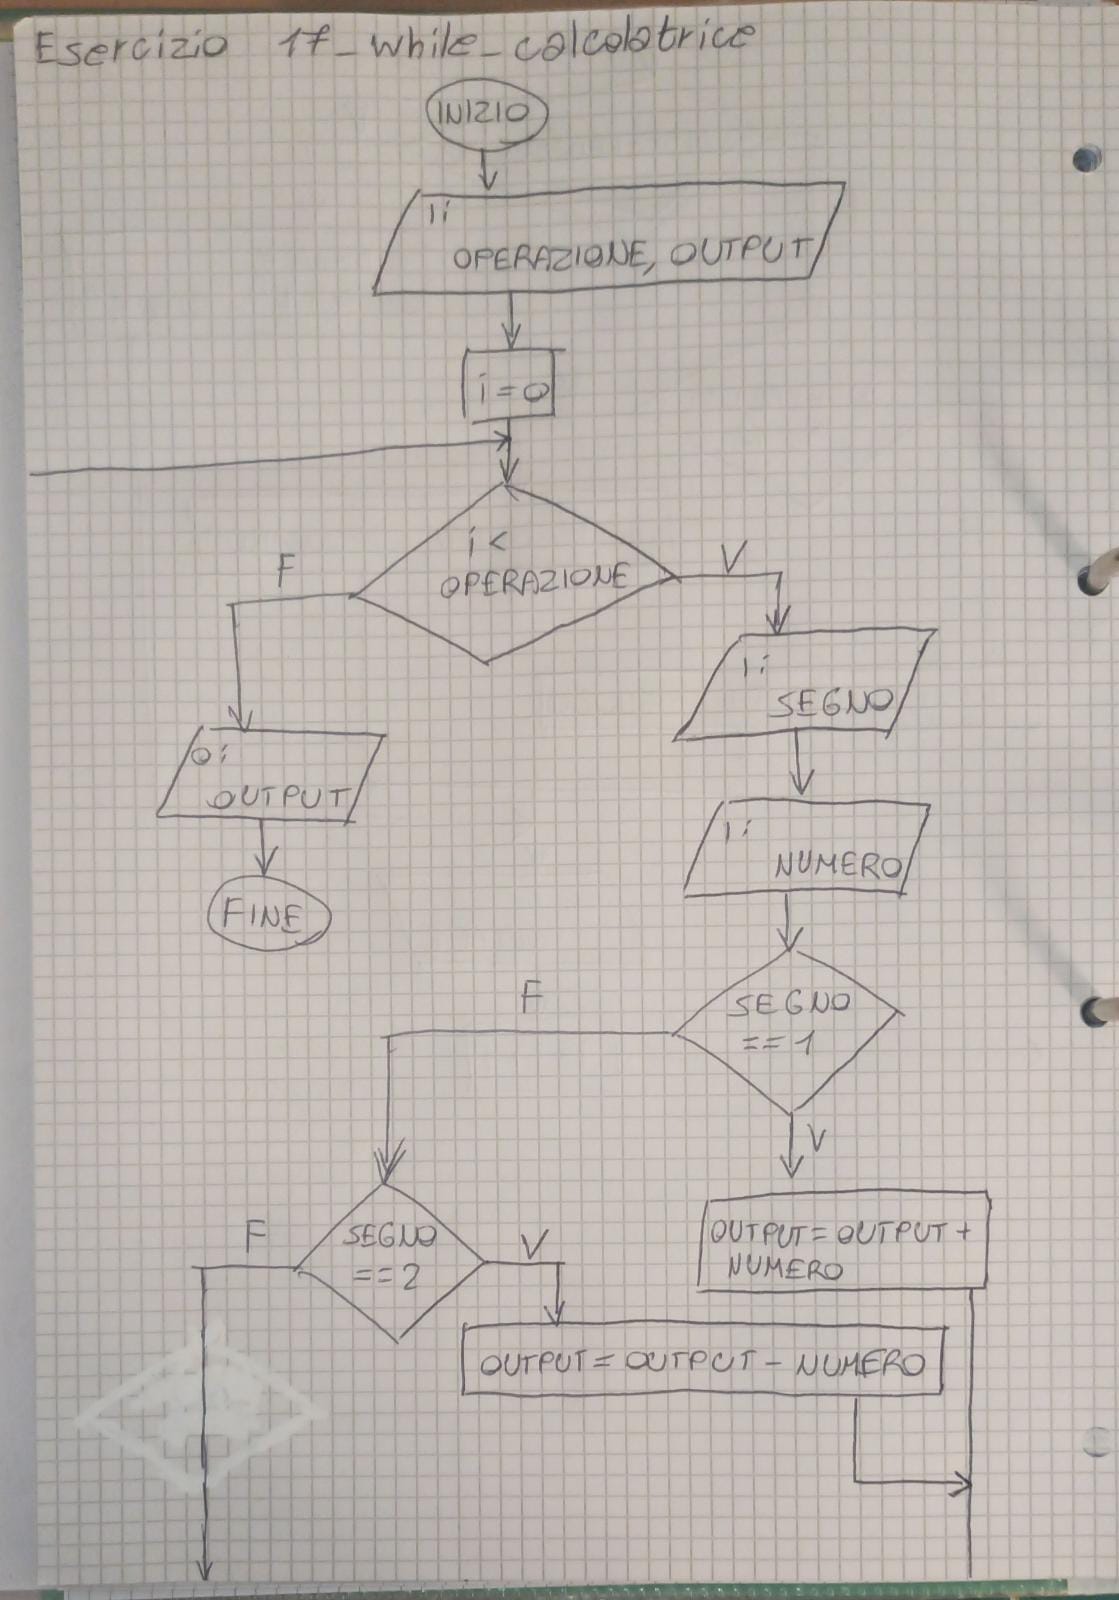 Esercizio 17_while_calcolatrice
INIZIO
I:
OPERAZIONE, OUTPUT
i=0
i <
OPERAZIONE
F
V
I:
SEGNO
O:
OUTPUT
I:
NUMERO
FINE
SEGNO
==1
F
V
SEGNO
==2
F
V
OUTPUT = OUTPUT +
NUMERO
OUTPUT = OUTPUT - NUMERO